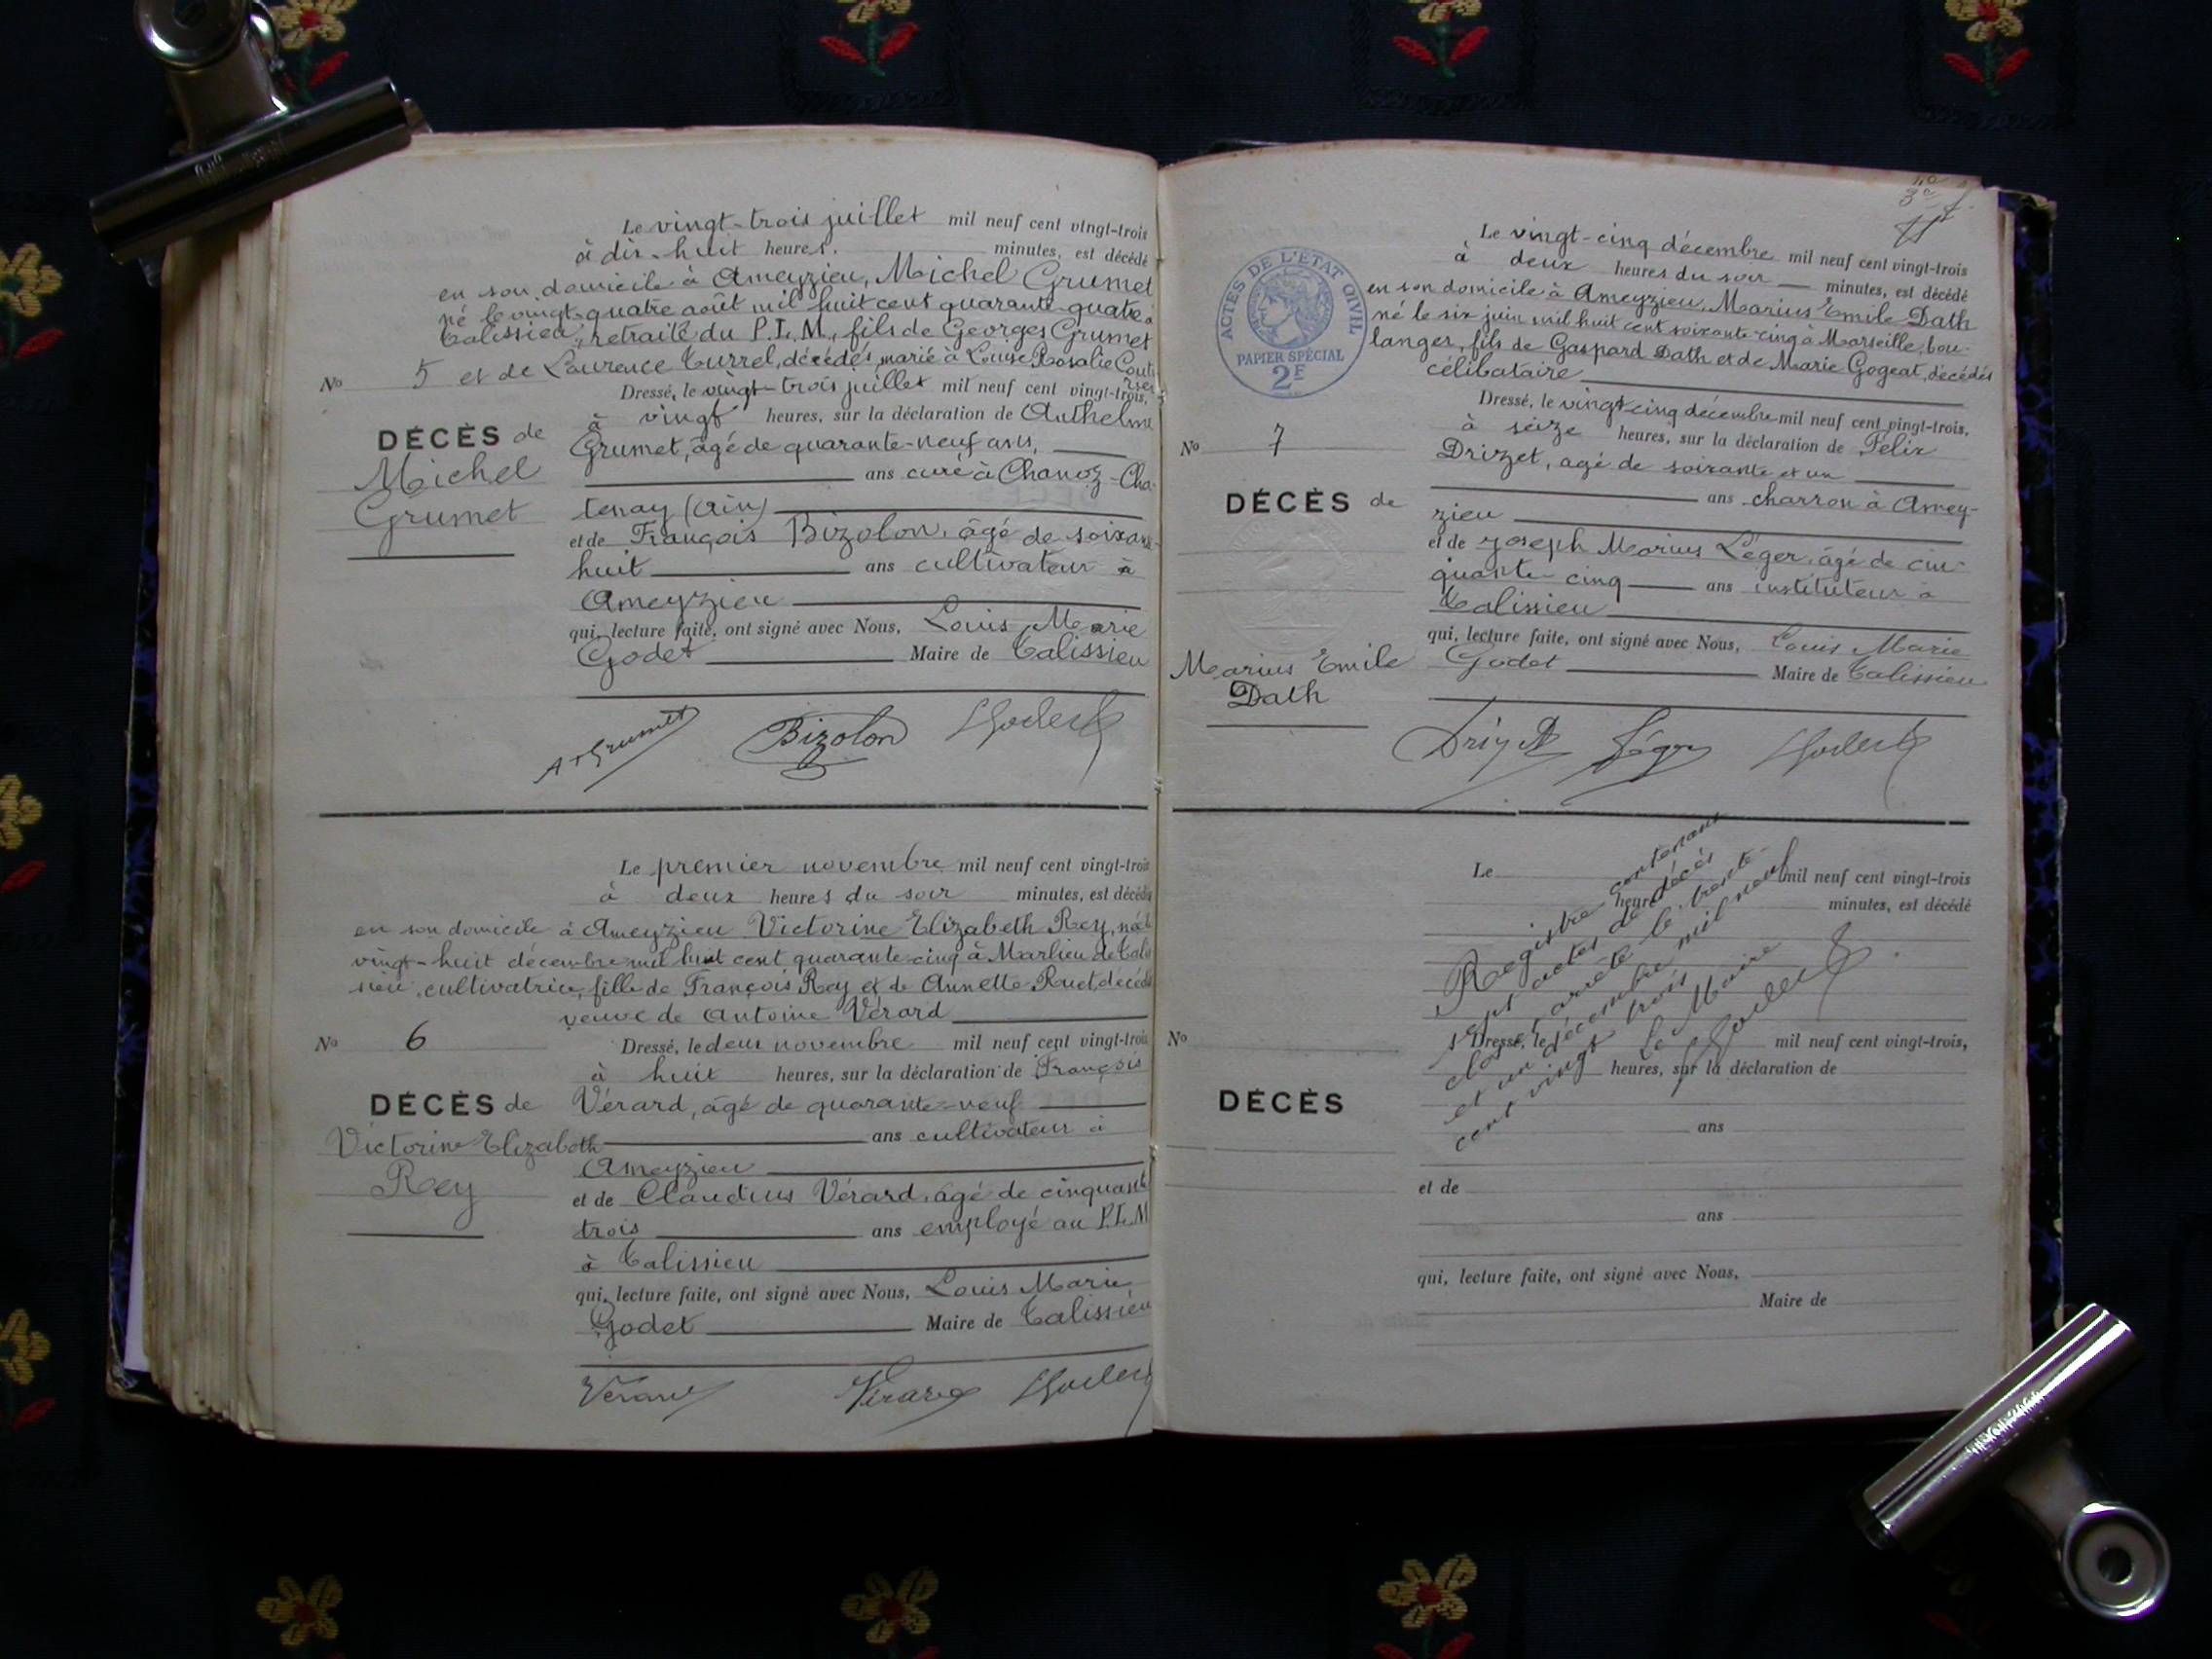 Le vingt-trois juillet mil neuf cent vingt-trois
à dix-huit heures. minutes, est décédé
en son domicile à Ameyzieu, Michel Grumet
né le vingt-quatre août mil huit cent quarante-quatre à
Talissieu, retraité du P.L.M., fils de Georges Grumet
No 5 et de Laurence Turrel, décédés, marié à Louise Rosalie
Dressé, le vingt-trois juillet mil neuf cent vingt-trois,
à vingt heures, sur la déclaration de Anthelme
DÉCÈS de
Michel
Grumet
Grumet, âgé de quarante-neuf ans,
ans curé à Chanoz-Cha-
tenay (Ain)
et de François Bizolon, âgé de soixante
huit ans cultivateur à
Ameyzieu
qui, lecture faite, ont signé avec Nous, Louis Marie
Godet Maire de Talissieu
A Grumet Bizolon LGodet
Le premier novembre mil neuf cent vingt-trois
à deux heures du soir minutes, est décédée
en son domicile à Ameyzieu Victorine Elizabeth Rey, née le
vingt-huit décembre mil huit cent quarante-cinq à Marlieu de Talis
sieu, cultivatrice, fille de François Rey et de Annette Ruet, décédés
veuve de Antoine Vérard
No 6
Dressé, le deux novembre mil neuf cent vingt-trois
à huit heures, sur la déclaration de François
DÉCÈS de
Victorine Elizabeth
Rey
Vérard, âgé de quarante-neuf
ans cultivateur à
Ameyzieu
et de Claudius Vérard, âgé de cinquante
trois ans employé au P.L.M
à Talissieu
qui, lecture faite, ont signé avec Nous, Louis Marie
Godet Maire de Talissieu
Vérard Vérard LGodet
ACTES DE L'ÉTAT CIVIL
PAPIER SPÉCIAL
2F
Le vingt-cinq décembre mil neuf cent vingt-trois
à deux heures du soir minutes, est décédé
en son domicile à Ameyzieu, Marius Emile Dath
né le six juin mil huit cent soixante-cinq à Marseille, bou-
langer, fils de Gaspard Dath et de Marie Gogeat, décédés
célibataire
Dressé, le vingt-cinq décembre mil neuf cent vingt-trois,
No 7
à seize heures, sur la déclaration de Félix
Drizet, agé de soixante et un
DÉCÈS de
Marius Emile
Dath
ans charron à Amey-
zieu
et de Joseph Marius Léger, âgé de cin-
quante-cinq ans instituteur à
Talissieu
qui, lecture faite, ont signé avec Nous, Louis Marie
Godet Maire de Talissieu
Drizet Léger LGodet
Le mil neuf cent vingt-trois
heure minutes, est décédé
Registre contenant
sept actes de décès
clos et arrêté le trente-
et un décembre mil neuf
cent vingt trois
Le Maire
LGodet
No
Dressé, le mil neuf cent vingt-trois,
heures, sur la déclaration de
DÉCÈS
ans
et de
ans
qui, lecture faite, ont signé avec Nous,
Maire de